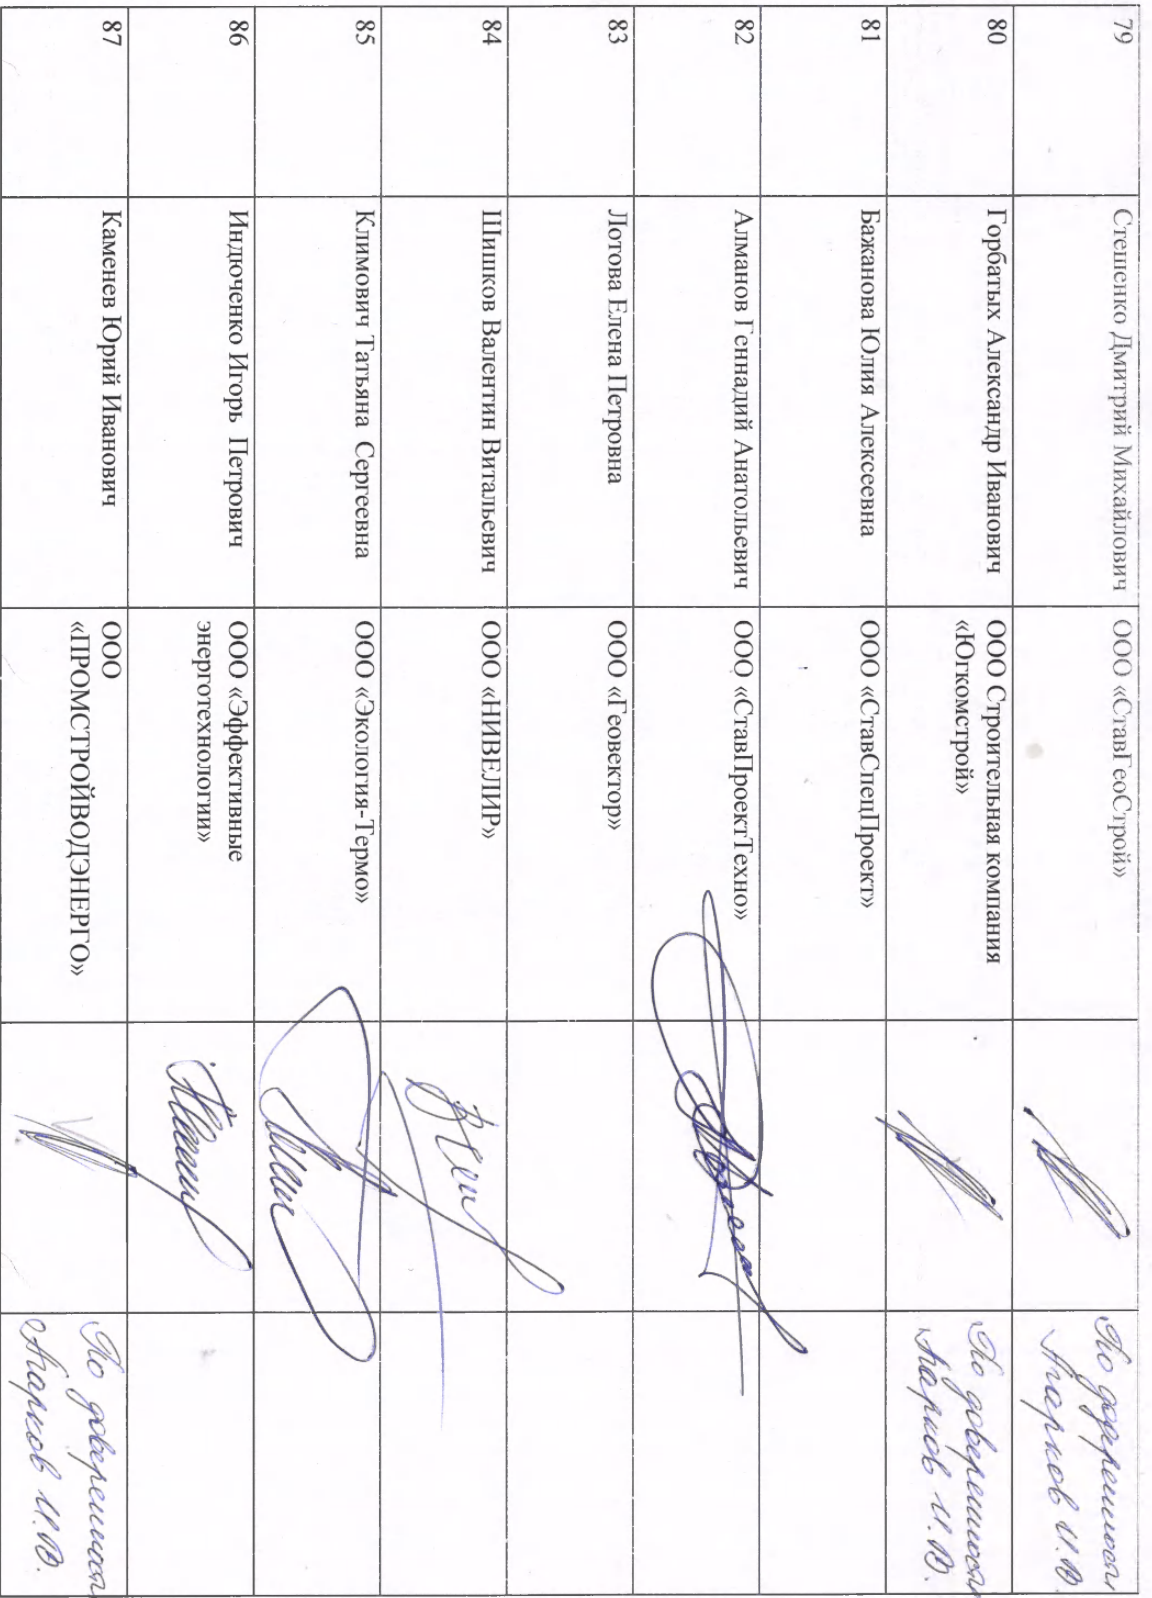 79
Стешенко Дмитрий Михайлович
ООО «СтавГеоСтрой»
По доверенности
И.В.
80
Горбатых Александр Иванович
ООО Строительная компания
«Югкомстрой»
По доверенности
И.В.
81
Бажанова Юлия Алексеевна
ООО «СтавСпецПроект»
82
Алманов Геннадий Анатольевич
ООО «СтавПроектТехно»
83
Лотова Елена Петровна
ООО «Геовектор»
84
Шишков Валентин Витальевич
ООО «НИВЕЛИР»
85
Климович Татьяна Сергеевна
ООО «Экология-Термо»
86
Индюченко Игорь Петрович
ООО «Эффективные
энерготехнологии»
87
Каменев Юрий Иванович
ООО
«ПРОМСТРОЙВОДЭНЕРГО»
По доверенности
И.В.